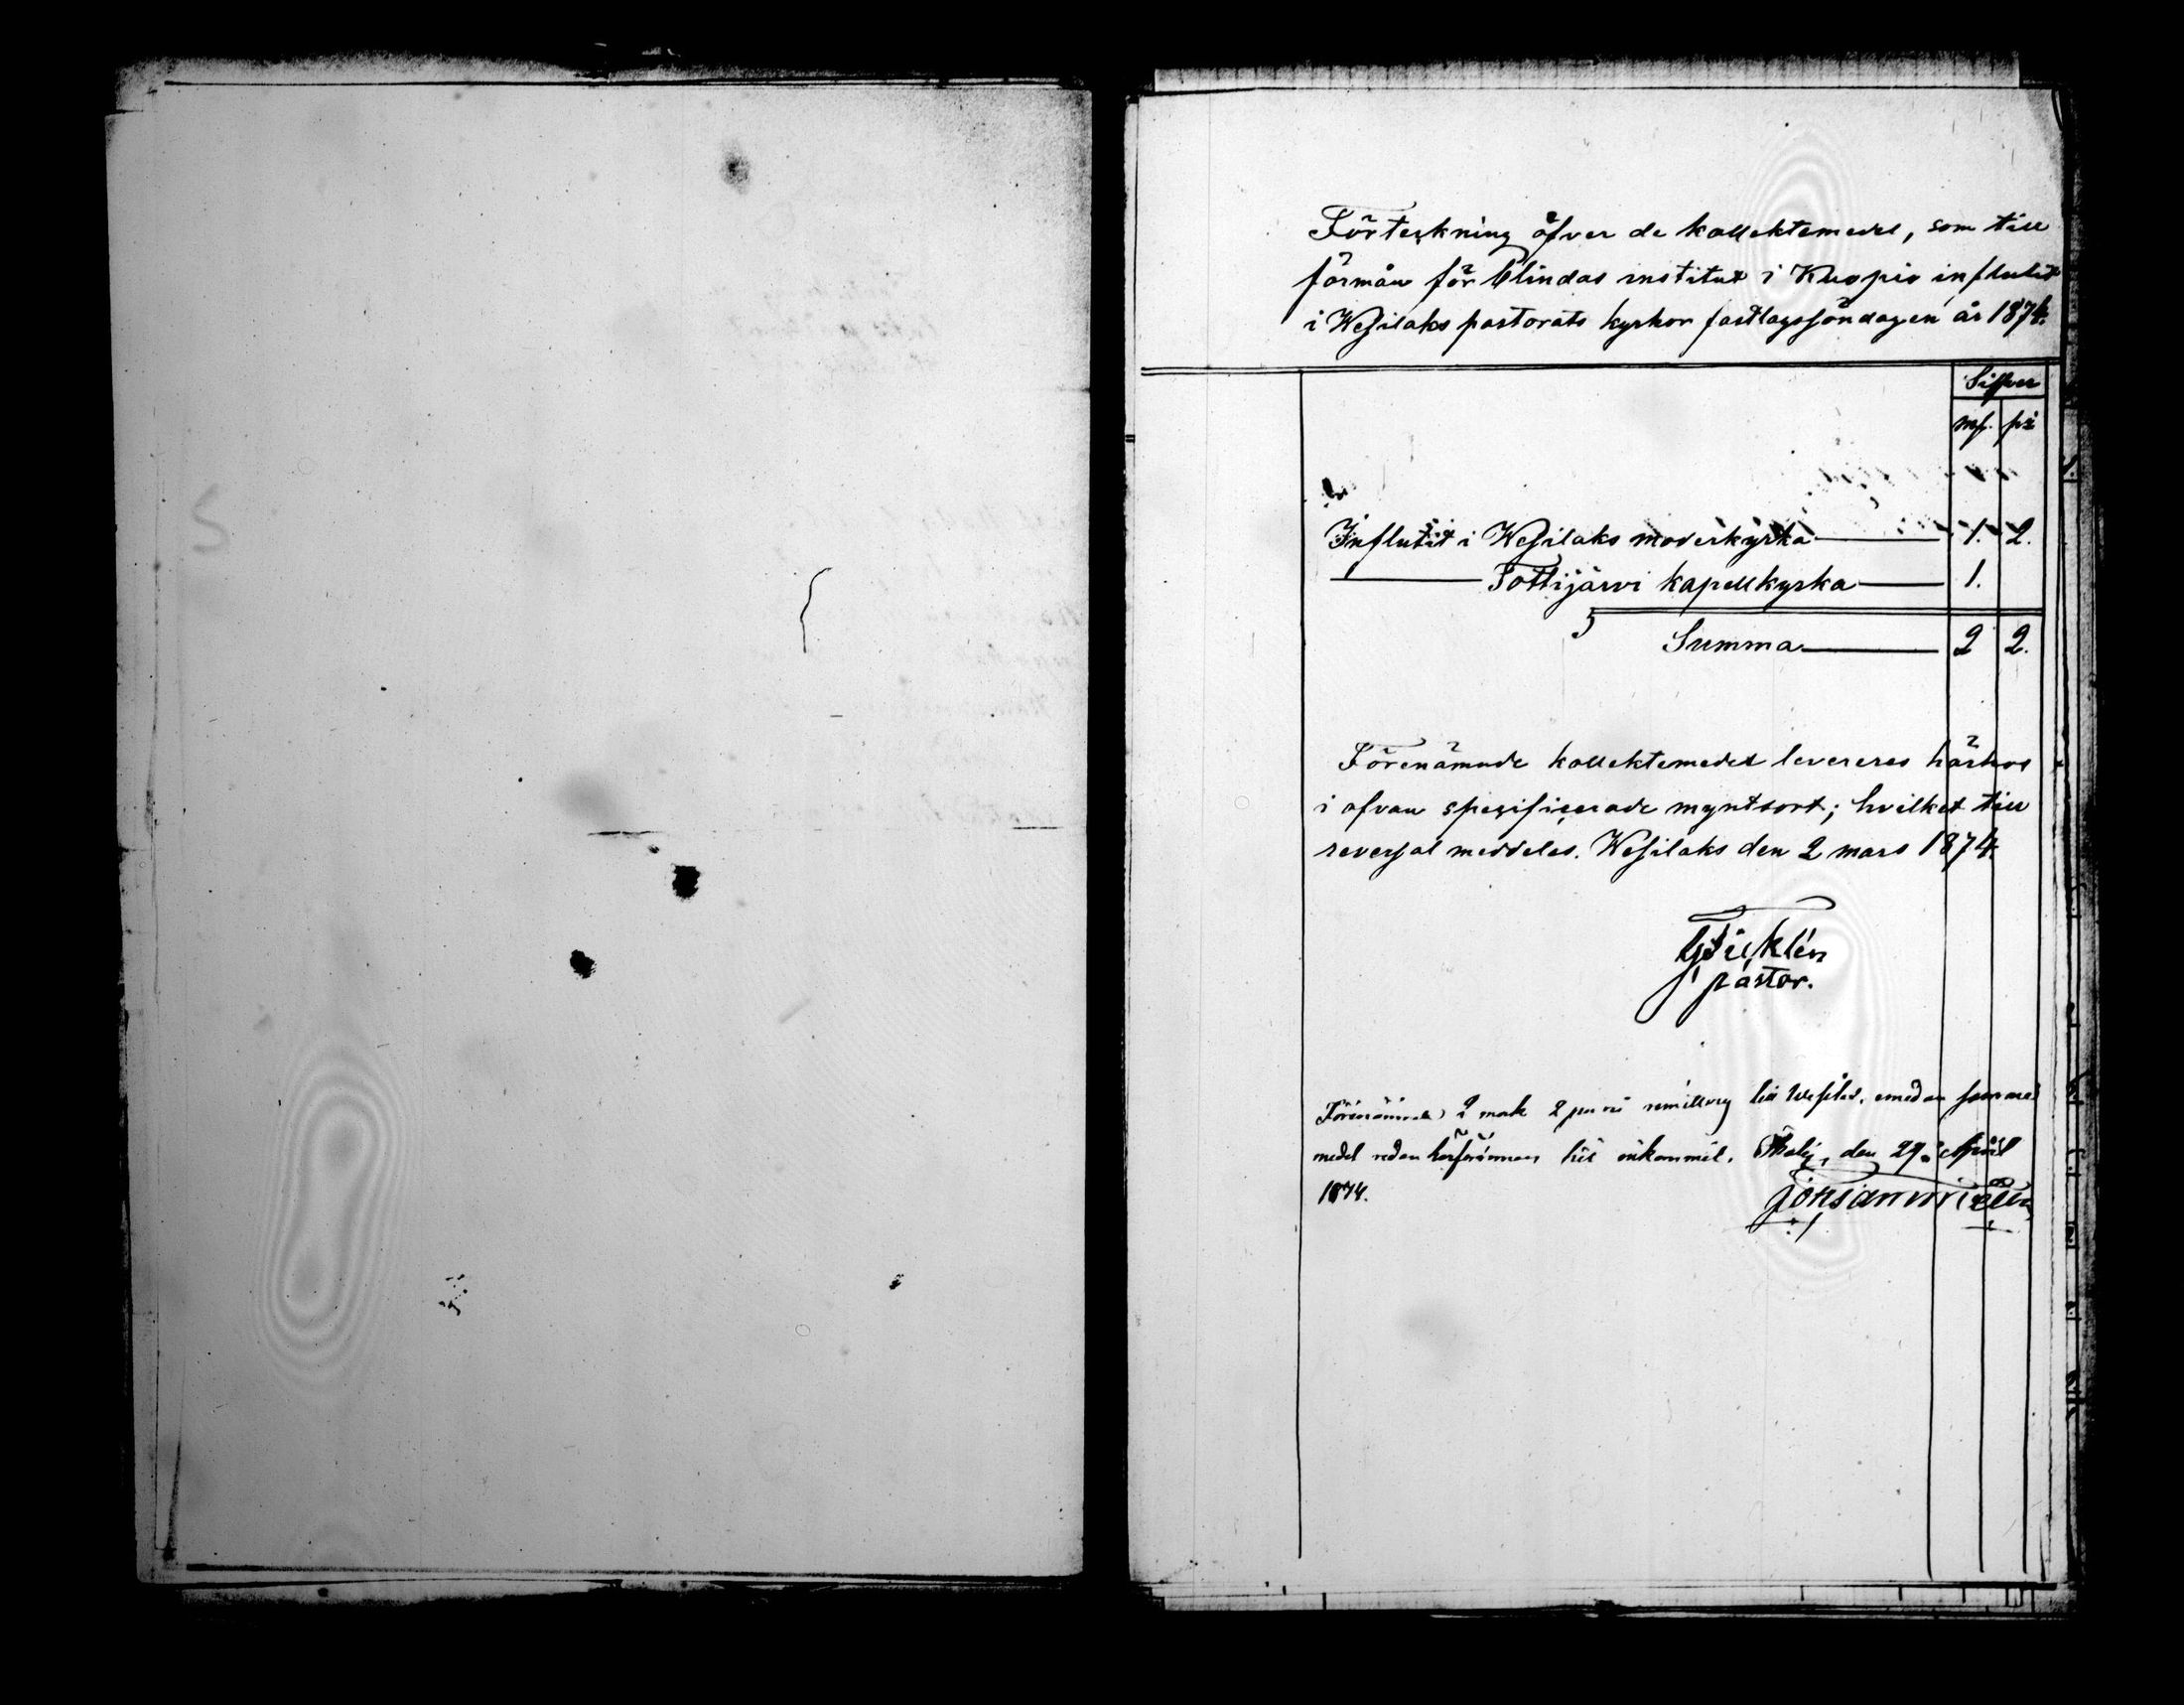 Förteckning öfver de kollektemedel, som till
förmån för blindas institut i Kuopio influtit
i Wesilaks pastorats kyrkor fastlagssöndagen år 1874.
Silfver
mf. pi
Influtit i Wesilaks moderkyrka 1. 2.
Tottijärvi kapellkyrka 1.
Summa 2 2.
Förenämnde kollektemedel levereres härhos
i ofvan specificerade myntsort; hvilket till
reversal meddeles. Wesilaks den 2 mars 1874.
pastor.
Förenämnde 2 mark 2 penni till Wesilaks, emedan samma
medel redan härförinnan hit inkommit. den 29 April
1874.